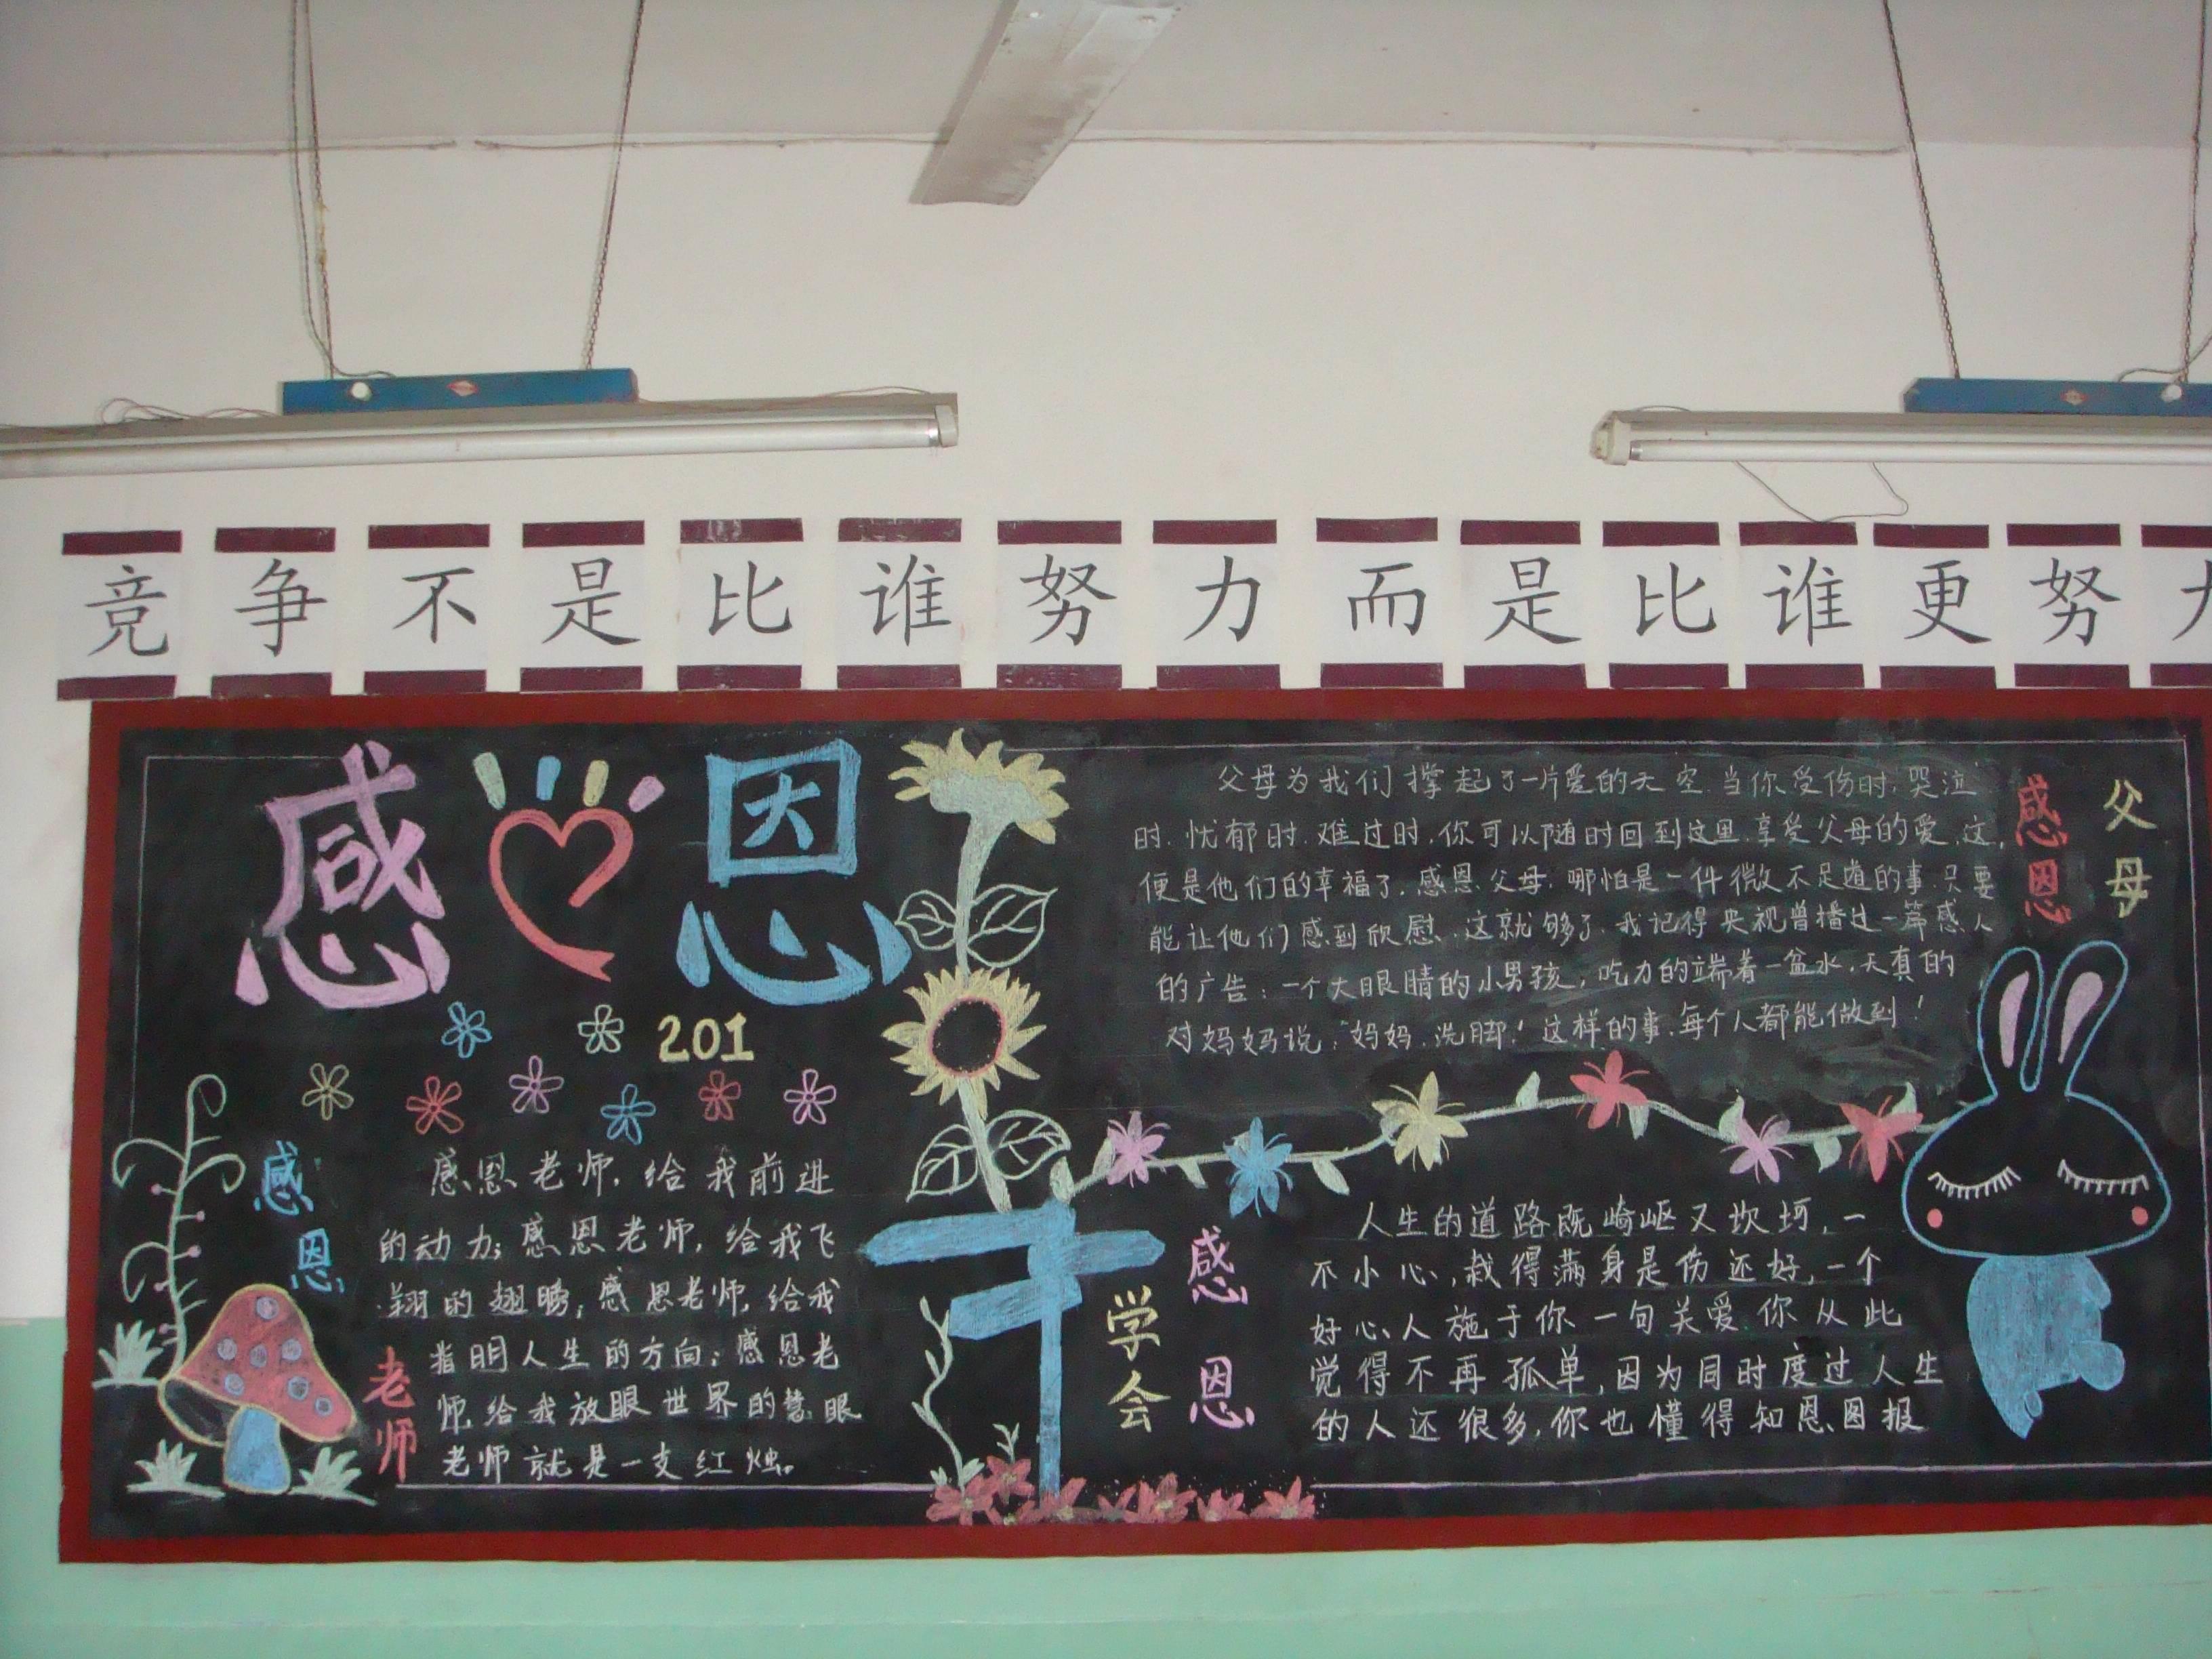 竞争不是比谁努力而是比谁更努力
感恩
201
感恩
老师
感恩老师,给我前进
的动力;感恩老师,给我飞
翔的翅膀;感恩老师,给我
指明人生的方向;感恩老
师,给我放眼世界的慧眼
老师就是一支红烛。
感恩
父母
父母为我们撑起了一片爱的天空.当你受伤时.哭泣
时.忧郁时.难过时.你可以随时回到这里.享受父母的爱.这,
便是他们的幸福了.感恩父母.哪怕是一件微不足道的事.只要
能让他们感到欣慰.这就够了.我记得央视曾播过一篇感人
的广告:一个大眼睛的小男孩,吃力的端着一盆水,天真的
对妈妈说:“妈妈.洗脚!”这样的事.每个人都能做到!
学会
感恩
人生的道路既崎岖又坎坷,一
不小心,栽得满身是伤还好,一个
好心人施于你一句关爱.你从此
觉得不再孤单,因为同时度过人生
的人还很多,你也懂得知恩图报